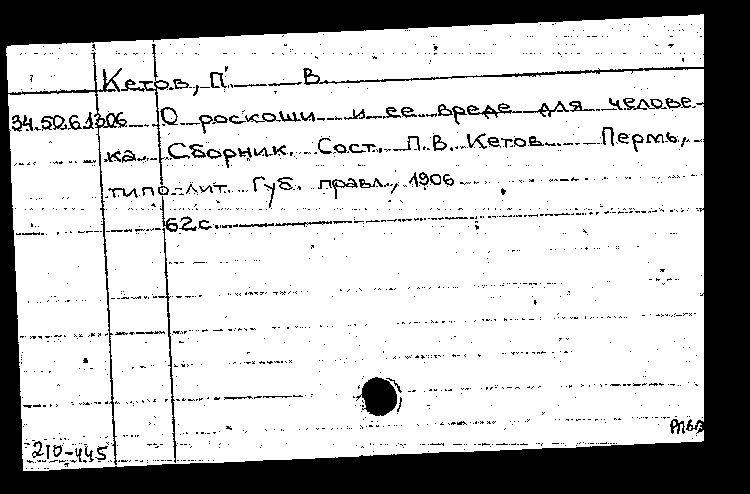 Кетов, П. В.
34.50.6.1306 О роскоши и ее вреде для челове-
ка. Сборник. Сост. П.В. Кетов. Пермь,
типо-лит. Губ. правл., 1906
62 с.
210-445